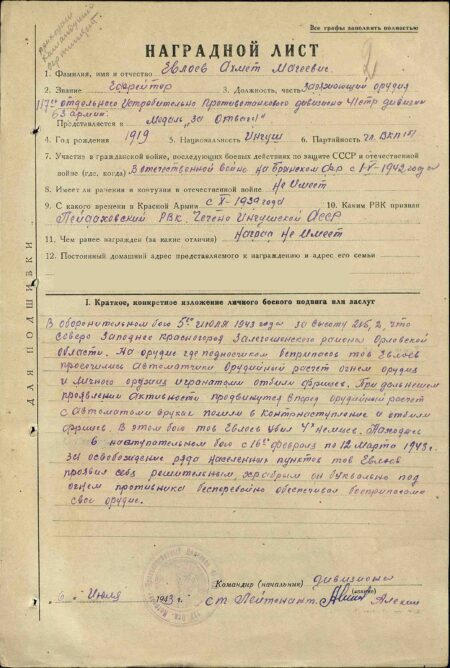 Все графы заполнять полностью
2
НАГРАДНОЙ ЛИСТ
1. Фамилия, имя и отчество Евлоев Ахмет Мачеевич
2. Звание Ефрейтор 3. Должность, часть Заряжающий орудия
117го отдельного Истребительно Противотанкового дивизиона 41стр дивизии
63 армии.
Представляется к Медаль "За Отвагу"
4. Год рождения 1919 5. Национальность Ингуш 6. Партийность чл. ВКП(б)
7. Участие в гражданской войне, последующих боевых действиях по защите СССР и отечественной
войне (где, когда) В отечественной войне на Брянском фр с 1942 года
8. Имеет ли ранения и контузии в отечественной войне Не Имеет
9. С какого времени в Красной Армии с 1939 года 10. Каким РВК призван
РВК. Чечено Ингушской АССР
11. Чем ранее награжден (за какие отличия) Наград Не Имеет
12. Постоянный домашний адрес представляемого к награждению и адрес его семьи
ДЛЯ ПОДШИВКИ
I. Краткое, конкретное изложение личного боевого подвига или заслуг
В оборонительном бою 5го июля 1943 года за высоту 2, что
Северо Западнее Залегощенского района Орловской
области. На орудие где подносчиком боеприпасов тов Евлоев
просочились автоматчики Орудийный расчет огнем орудия
и личного оружия и гранатами отбили фрицев. При дальнейшем
проявлении Активности продвинутся вперед орудийный расчет
с Автоматами в руках пошли в контрнаступление и отбили
фрицев. В этом бою тов Евлоев убил немцев. Находясь
в наступательном бою с 16го февраля по 12 Марта 1943г.
за освобождение ряда населенных пунктов тов Евлоев
проявил себя решительным, храбрым он буквально под
огнем противника бесперебойно обеспечивал боеприпасами
свое орудие.
Командир (начальник) дивизиона
6 Июля 1943 г. ст Лейтенант